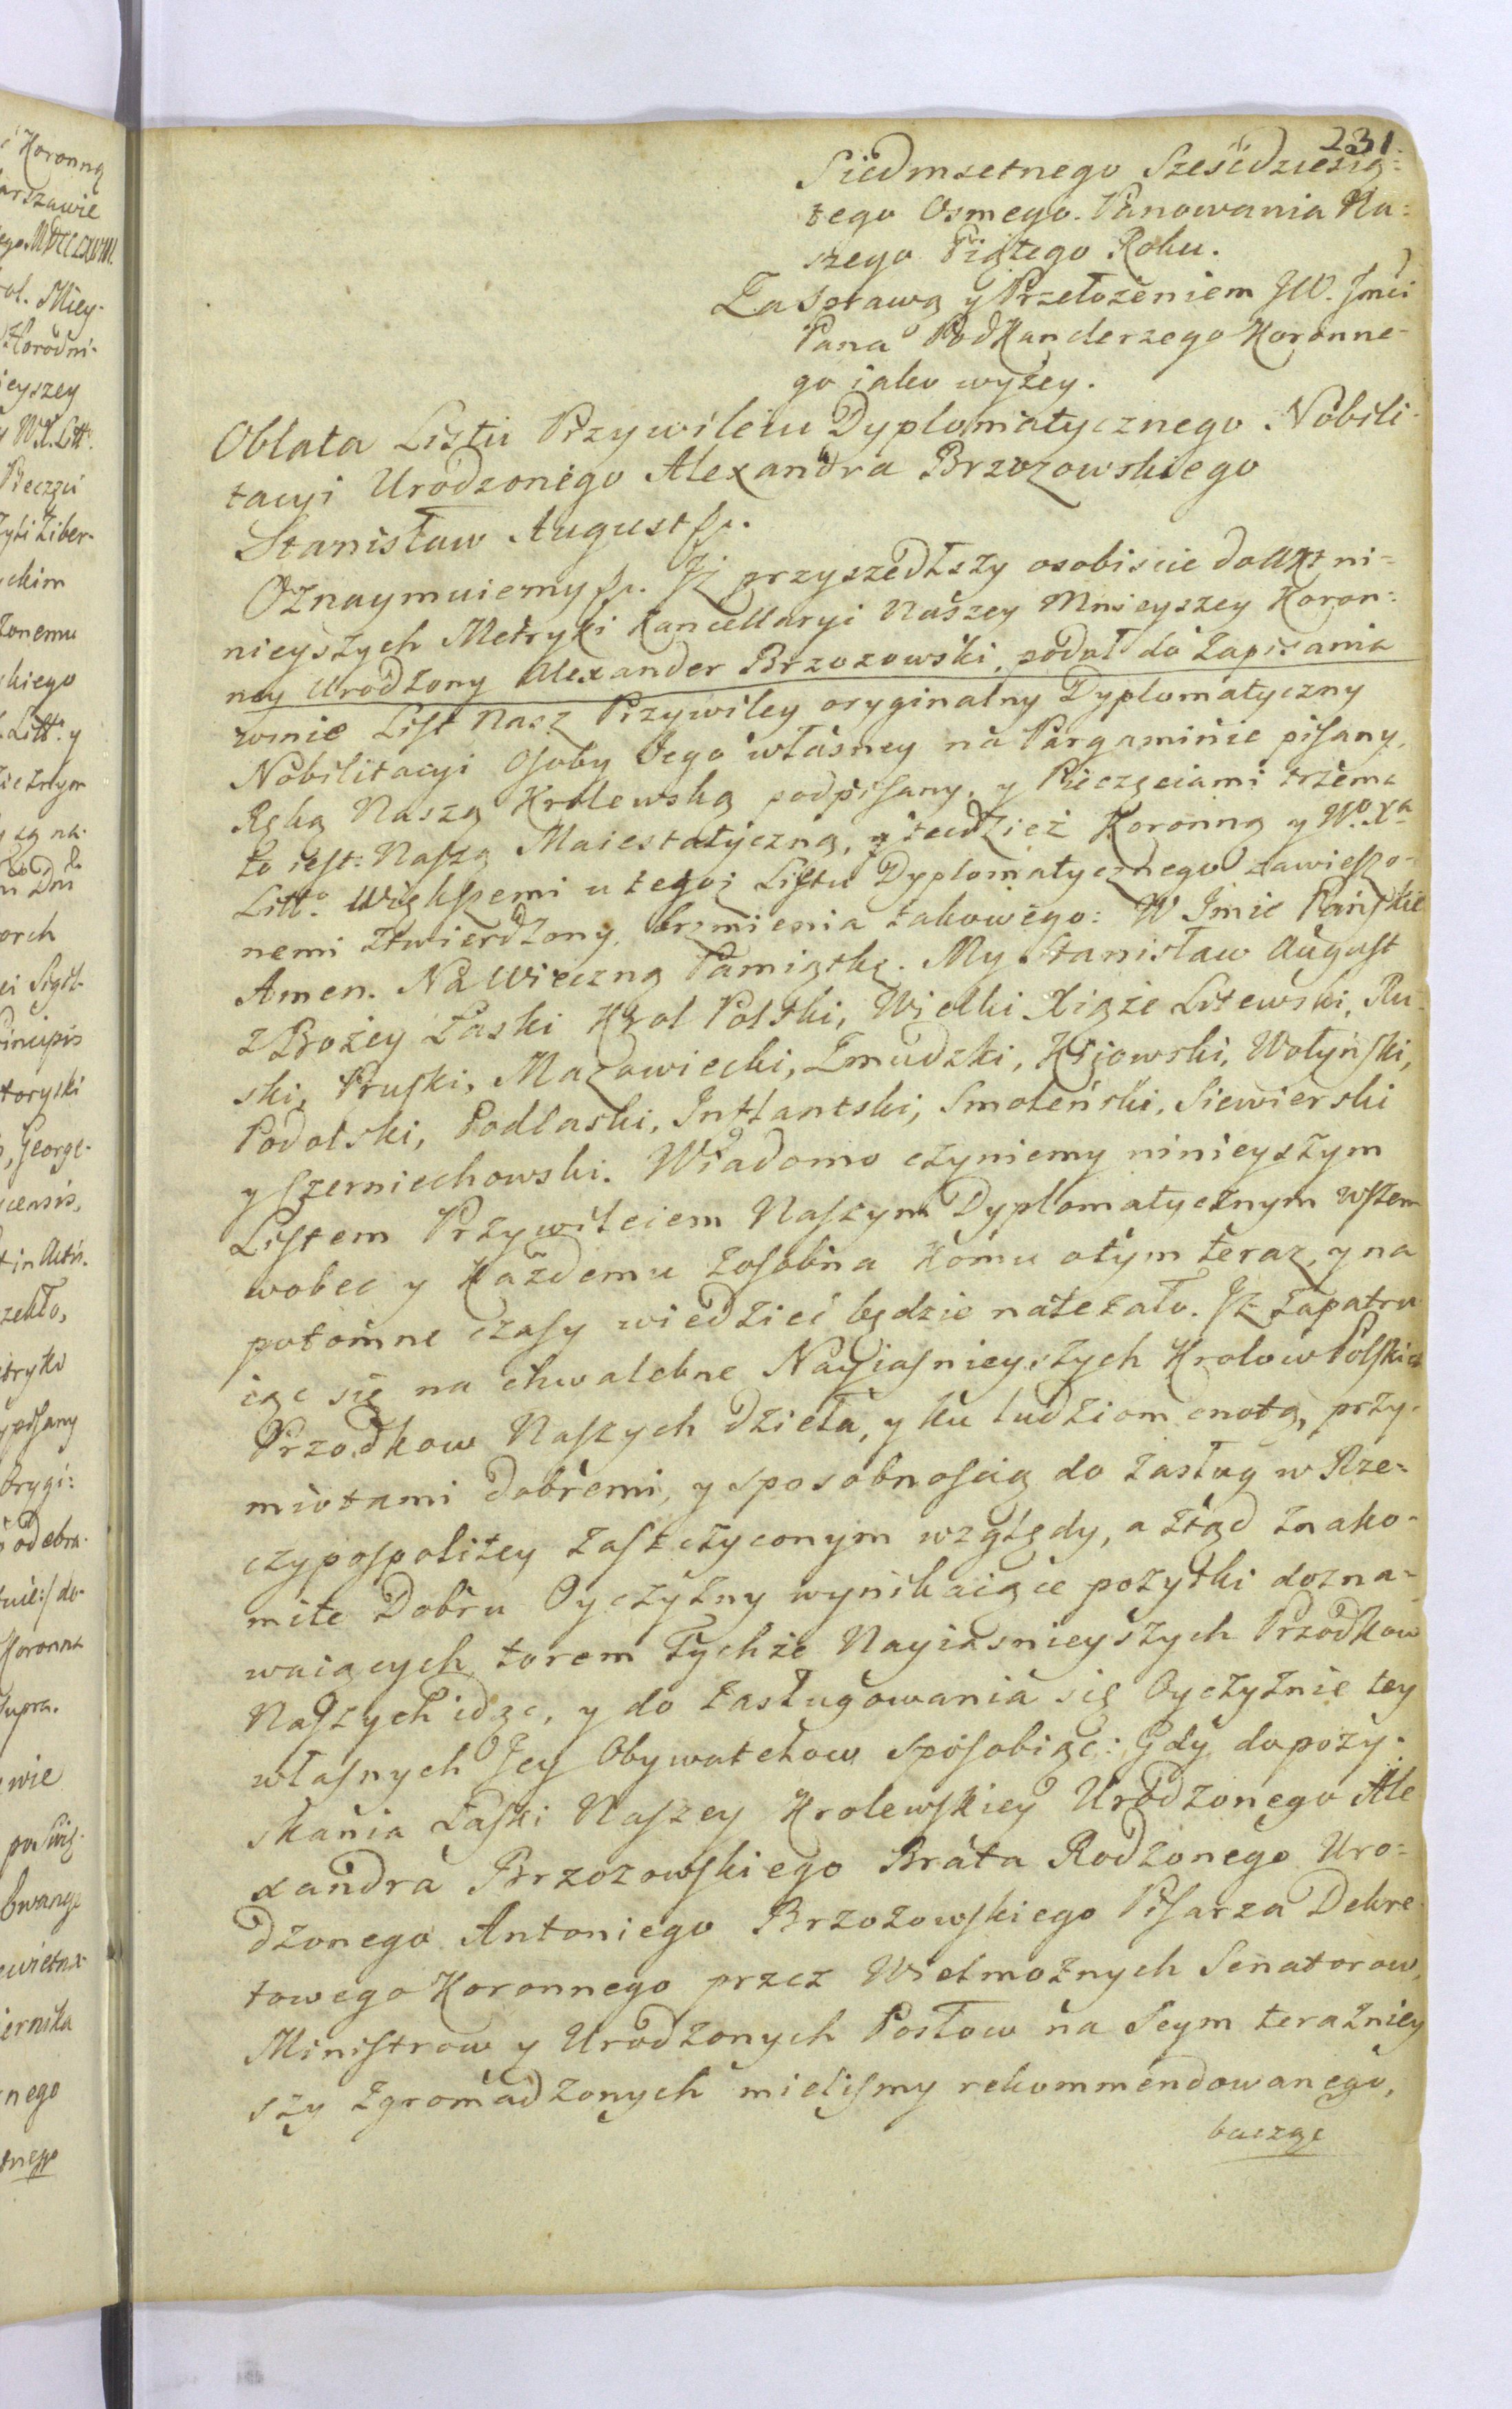 231.
Siedmsetnego Sześćdziesią-
tego Osmego. Panowania Na-
szego Piątego Roku.
Za Sprawą y Przełożeniem JW. Jmci
Pana PodKanclerzego Koronne-
go iako wyżey.
Oblata Listu Przywileiu Dyplomatycznego Nobili-
tacyi Urodzonego Alexandra Brzozowskiego
Stanisław August &c.
Oznaymuiemy &c. Jż przyszedłszy osobiscie do Akt ni-
nieyszych Metryki Kancellaryi Naszey Mnieyszey Koron-
ney Urodzony Alexander Brzozowski, podał do Zapisania
List Nasz Przywiley oryginalny Dyplomatyczny
Nobilitacyi Osoby Jego własney na Pargaminie pisany,
Ręką Naszą Krolewską podpisany, y Pieczęciami trzema
to iest: Naszą Maiestatyczną, y tudzież Koronną y W.o X.a
Litt.o Większemi u tegoż Listu Dyplomatycznego zawieszo-
nemi ztwierdzony, brzmienia takowego: W Jmie Pańskie
Amen. Na Wieczną Pamiątkę. My Stanisław August
z Bożey Łaski Krol Polski, Wielki Xiąże Litewski, Ru-
ski, Pruski, Mazowiecki, Zmudzki, Kijowski, Wołyński,
Podolski, Podlaski, Inflantski, Smoleński, Siewierski
y Czerniechowski. Wiadomo czyniemy ninieyszym
Listem Przywileiem Naszym Dyplomatycznym wszem
wobec y Każdemu zosobna Komu otym teraz, y na
potomne czasy wiedzieć będzie należało. Jż Zapatru
iąc się na chwalebne Nayiasnieyszych Krolow Polskich
Przodkow Naszych dzieła, y ku ludziom cnotą, przy-
miotami dobremi, y sposobnością do zasług w Rze-
czypospolitey zaszczyconym względy, a ztąd znako-
mite Dobru Oyczyzny wynikaiące pożytki dozna-
waiących, torem tychże Nayiasnieyszych Przodkow
Naszych idąc, y do zasługowania się Oyczyznie tey
własnych Jey Obywatelow sposobiąc: Gdy do pozy-
skania Łaski Naszey Krolewskiey Urodzonego Ale
xandra Brzozowskiego Brata Rodzonego Uro-
dzonego Antoniego Brzozowskiego Pisarza Dekre
towego Koronnego przez Wielmożnych Senatorow,
Ministrow y Urodzonych Posłow na Seym teraźniey
szy zgromadzonych mielismy rekommendowanego,
bacząc